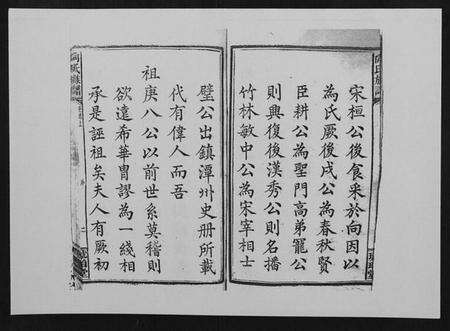 宋桓公後食采於向因以
為氏厥後戌公為春秋賢
臣耕公為聖門高弟寵公
則興復後漢秀公則名播
竹林敏中公為宋宰相士
璧公出鎮潭州史册所載
代有偉人而吾
祖庚八公以前世系莫稽則
欲遠希華胄謬為一綫相
承是誣祖矣夫人有厥初